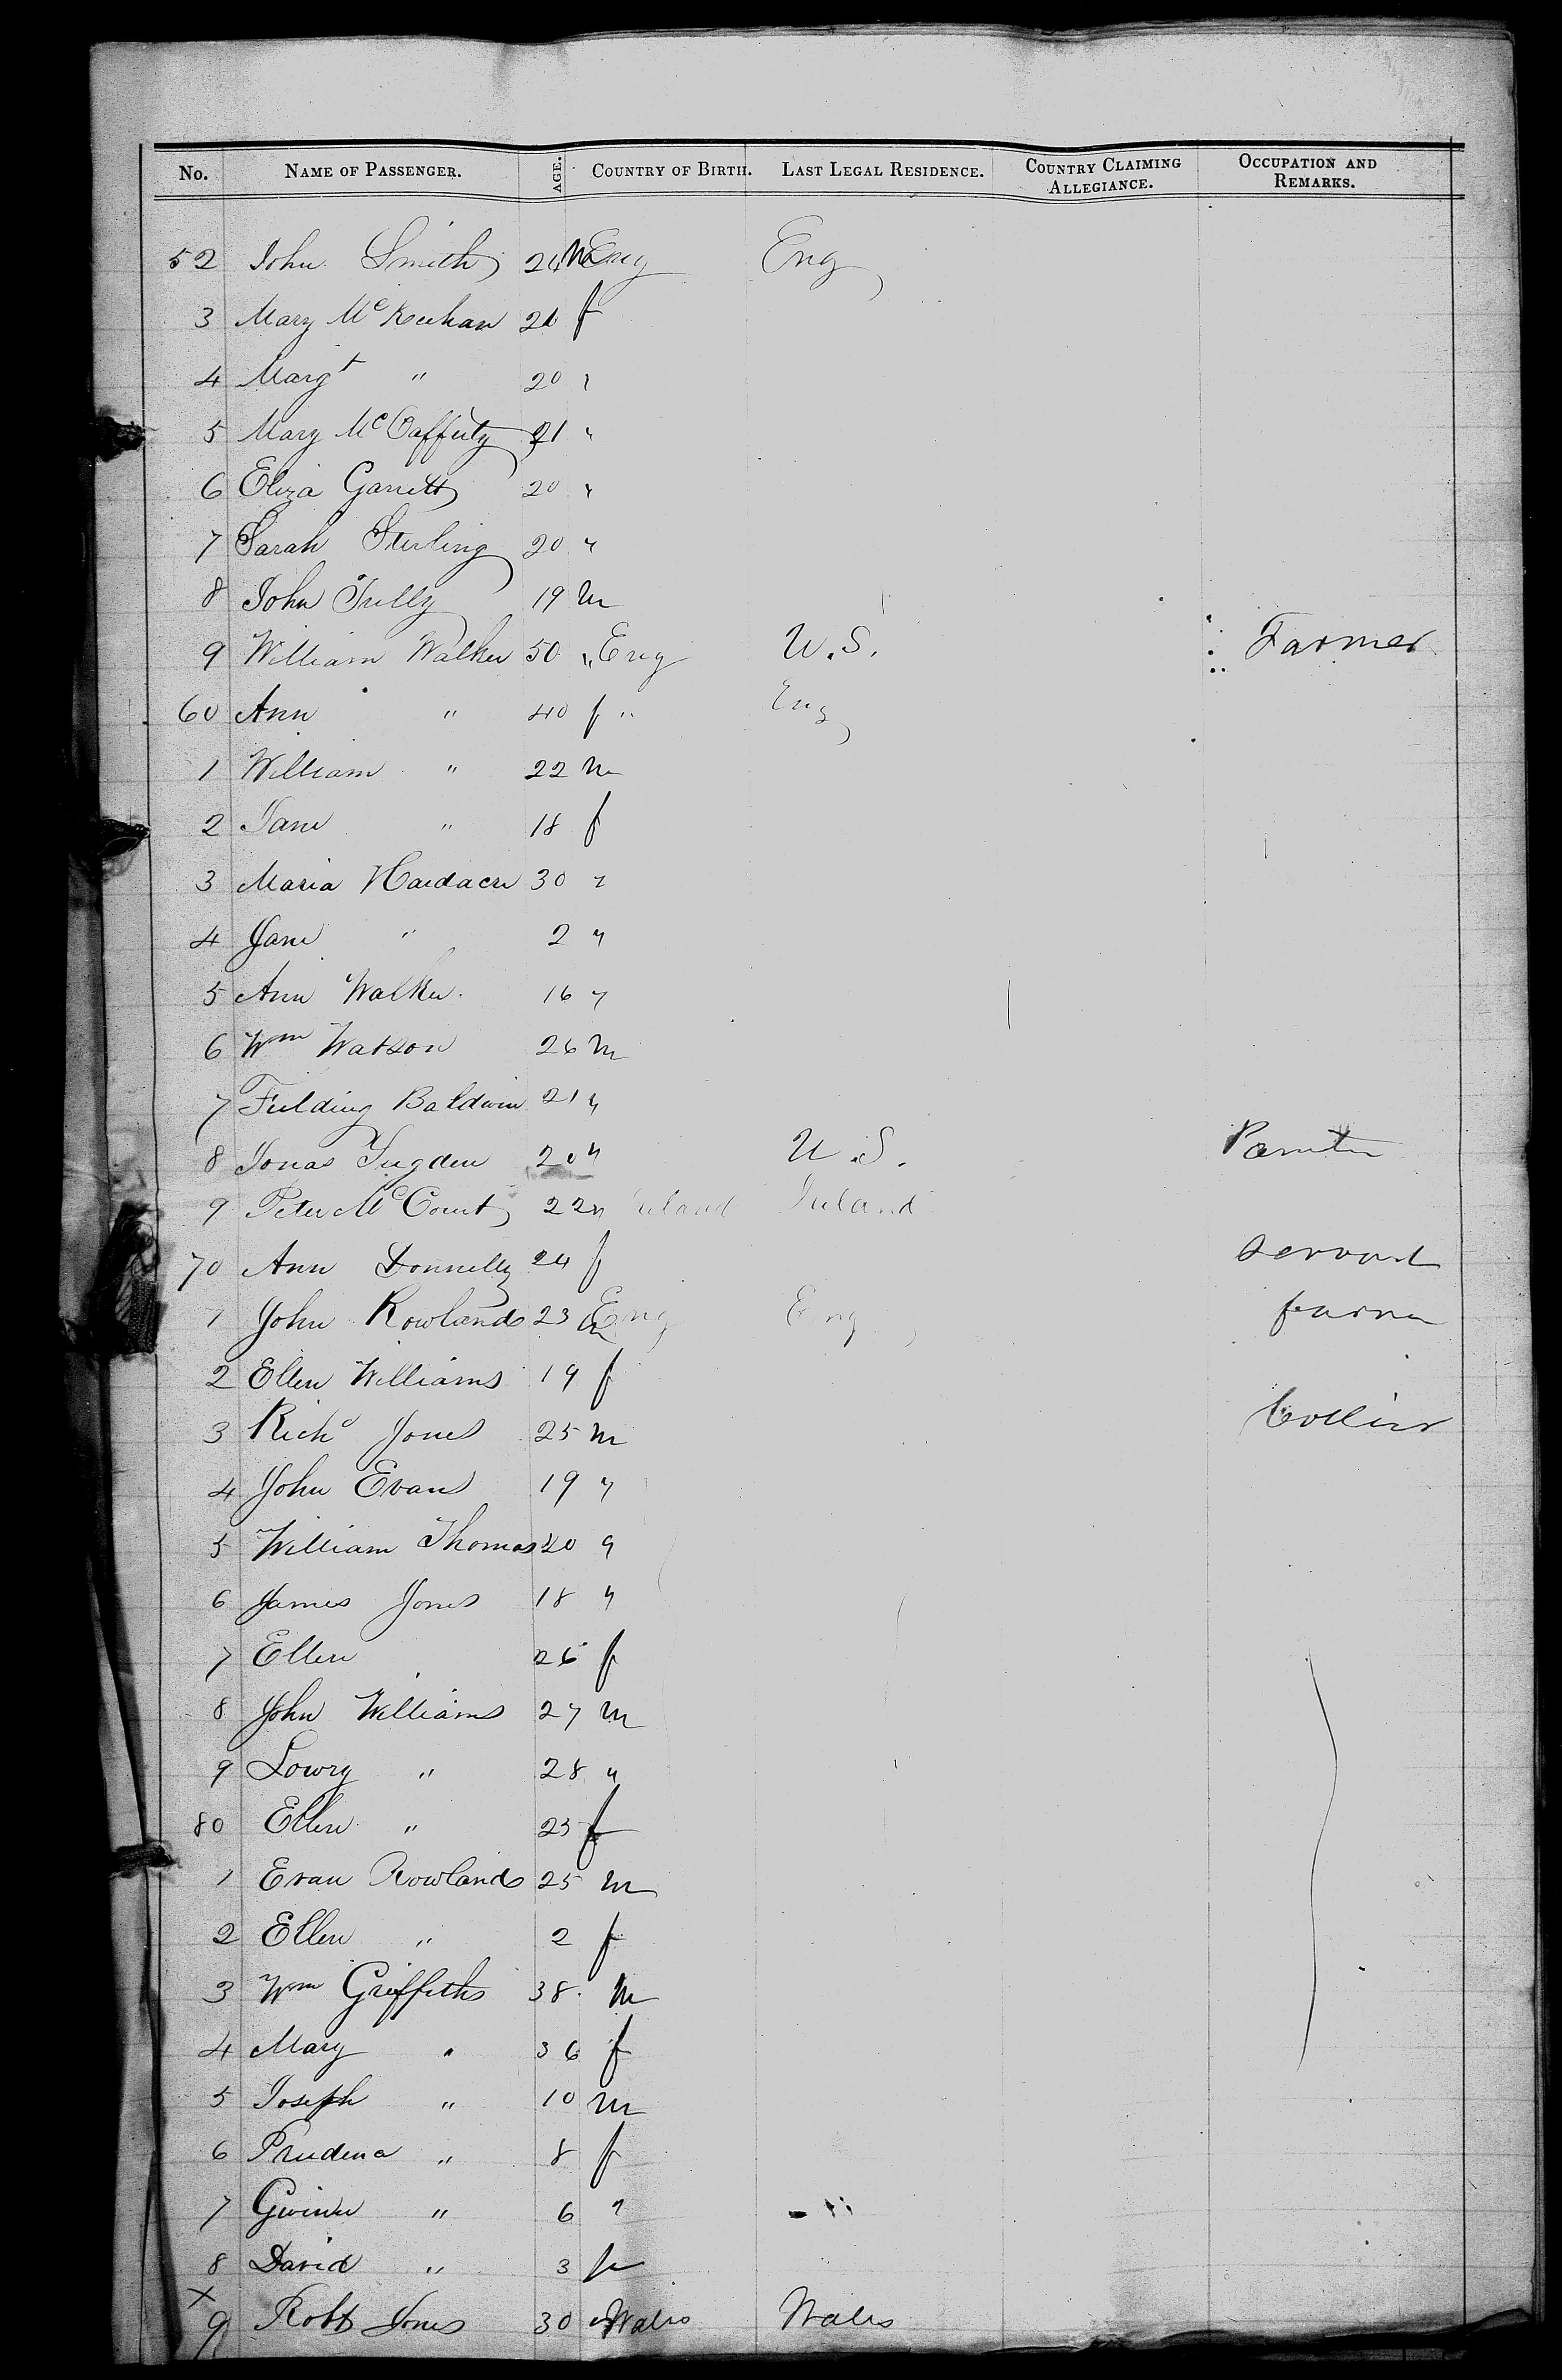 No. NAME OF PASSENGER. AGE. COUNTRY OF BIRTH. LAST LEGAL RESIDENCE. COUNTRY CLAIMING ALLEGIANCE. OCCUPATION AND REMARKS.
52 John Smith 24 m Eng Eng
3 Mary McKeehan 21 f
4 Margt " 20 "
5 Mary McCafferty 21 "
6 Eliza Garrett 20 "
7 Sarah Sterling 20 "
8 John Tully 19 m
9 William Walker 50 " Eng U.S. Farmer
60 Ann " 40 f " Eng
1 William " 22 m
2 Jane " 18 f
3 Maria Hardacre 30 "
4 Jane " 2 "
5 Ann Walker 16 "
6 Wm Watson 26 m
7 Feilding Baldwin 21 "
8 Jonas Sugden 20 " U.S. Painter
9 Peter McCourt 22 " Ireland Ireland
70 Ann Donnelly 24 f Servant
1 John Rowlands 23 m Eng Eng farmer
2 Ellen Williams 19 f
3 Richd Jones 25 m Collier
4 John Evans 19 "
5 William Thomas 20 "
6 James Jones 18 "
7 Ellen 26 f
8 John Williams 27 m
9 Lowry " 28 "
80 Ellen " 25 f
1 Evan Rowlands 25 m
2 Ellen " 2 f
3 Wm Griffiths 38 m
4 Mary " 36 f
5 Joseph " 10 m
6 Prudena " 8 f
7 " 6 "
8 David " 3
x
9 Robt Jones 30 " Wales Wales